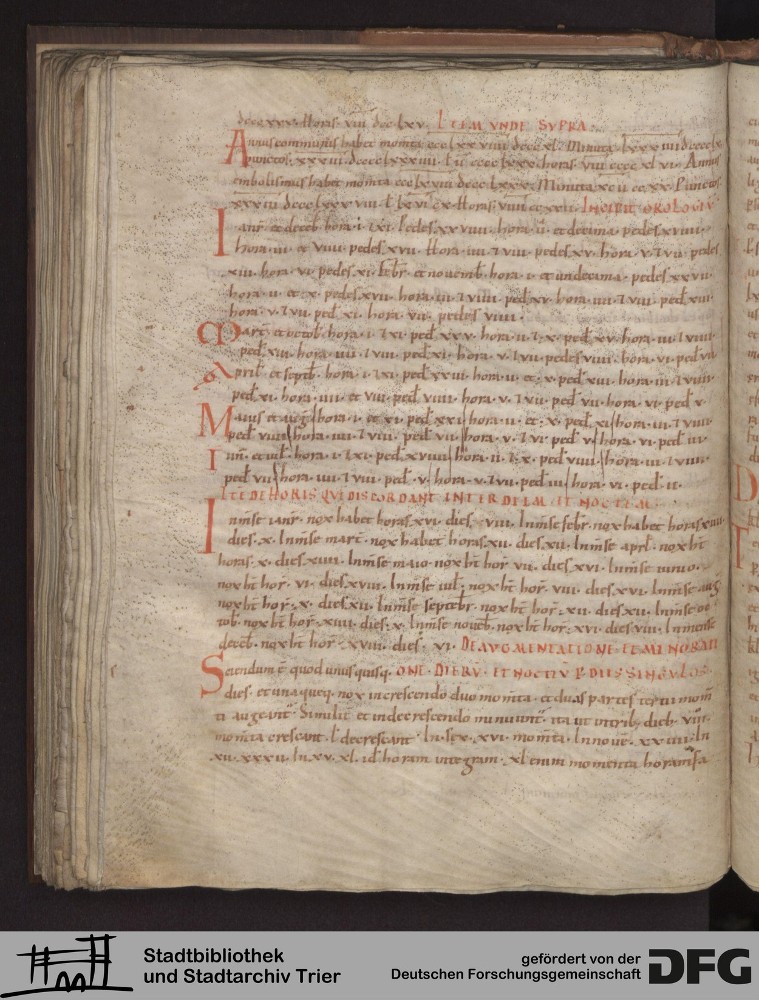 dcccxxx. Horas. viii dcc lxv. ITEM VNDE SVPRA.
Annus communis habet momta ccclxxxviii dccc xl. Minuta
punctos. xxxiii. dcccc lxxxiiii. horas. viii cccc xl vi. Annus
embolismus habet momta ccclxxiii dccc lxxx. Minuta xcii cc.xx. Punctos.
xxxiii dccc lxxx viii. Horas. viiii ccxxii. INCIPIT OROLOGIV
Ianr. et decēb. hora. i. ⁊ xi. pedes xxviiii. hora. ii. et decima. pedes xviiii.
hora. iii. et viiii. pedes. xvii. Hora. iiii. ⁊ viii. pedes. xv. hora. v. ⁊ vii. pedes
xiii. hora. vi. pedes. xi. Febr. et nouemb. hora. i. et undecima. pedes xxvii.
hora. ii. et. x. pedes. xvii. hora. iii. ⁊ viiii. ped. xv. hora. iiii. ⁊ viii. ped. xiii.
hora. v. ⁊ vii. ped. xi. hora. vi. pedes viiii.
Mart. et octob. hora. i. ⁊ xi. ped. xxv. hora. ii. ⁊. x. ped. xv. hora. iii. ⁊ viiii.
ped. xiii. hora. iiii. ⁊ viii. ped. xi. hora. v. ⁊ vii. pedes viiii. hora. vi. ped. vii
April. et septb. hora. i. ⁊ xi. ped. xxiii. hora. ii. et. x. ped. xiii. hora. iii. ⁊ viiii.
ped. xi. hora. iiii. et viii. ped. viiii. hora. v. ⁊ vii. ped. vii. hora. vi. ped. v.
Maius et aug. hora. i. et xi. ped. xxi. hora. ii. et. x. ped. xi. hora. iii. ⁊ viiii.
ped. viiii. hora. iiii. ⁊ viii. ped. vii. hora. v. ⁊ vi. ped. v. hora. vi. ped. iii.
Iun. et iul. hora. i. ⁊ xi. ped. xviiii. hora. ii. ⁊. x. ped. viiii. hora. iii. ⁊ viiii.
ped. vii. hora. iiii. ⁊ viii. ped. v. hora. v. ⁊ vii. ped. iii. hora. vi. ped. ii.
ITE DE HORIS QVI DISCORDANT INTER DIEM ET NOCTEM.
In mse ianr. nox habet horas. xvi. dies. viii. In mse febr. nox habet horas. xiiii.
dies. x. In mse mart. nox habet horas. xii. dies. xii. In mse aprl. nox ht
horas. x. dies. xiiii. In mse maio. nox ht hor. viii. dies. xvi. In mse iunio.
nox ht hor. vi. dies. xviii. In mse iul. nox ht hor. viii. dies. xvi. In mse aug.
nox ht hor. x. dies. xiiii. In mse septebr. nox ht hor. xii. dies. xii. In mse oc
tob. nox ht hor. xiiii. dies. x. In mse noueb. nox ht hor. xvi. dies. viii. In mense
deceb. nox ht hor. xviii. dies. vi. DE AVGMENTATIONE ET MINORATI
Sciendum ē quod unusquisq. ONE DIERV. ET NOCTIV P DIES SINGVLOS.
dies. et unaqueq. nox in crescendo duo momta. et duas partes tertii mom
ti augent. Similit et in decrescendo minuunt. ita ut in trib. dieb. viii.
momta crescant. l decrescant. In. sex. xvi. momta. In noue. xxiiii. In
xii. xxxii. In xv. xl. id horam integram. xl enim momenta hora